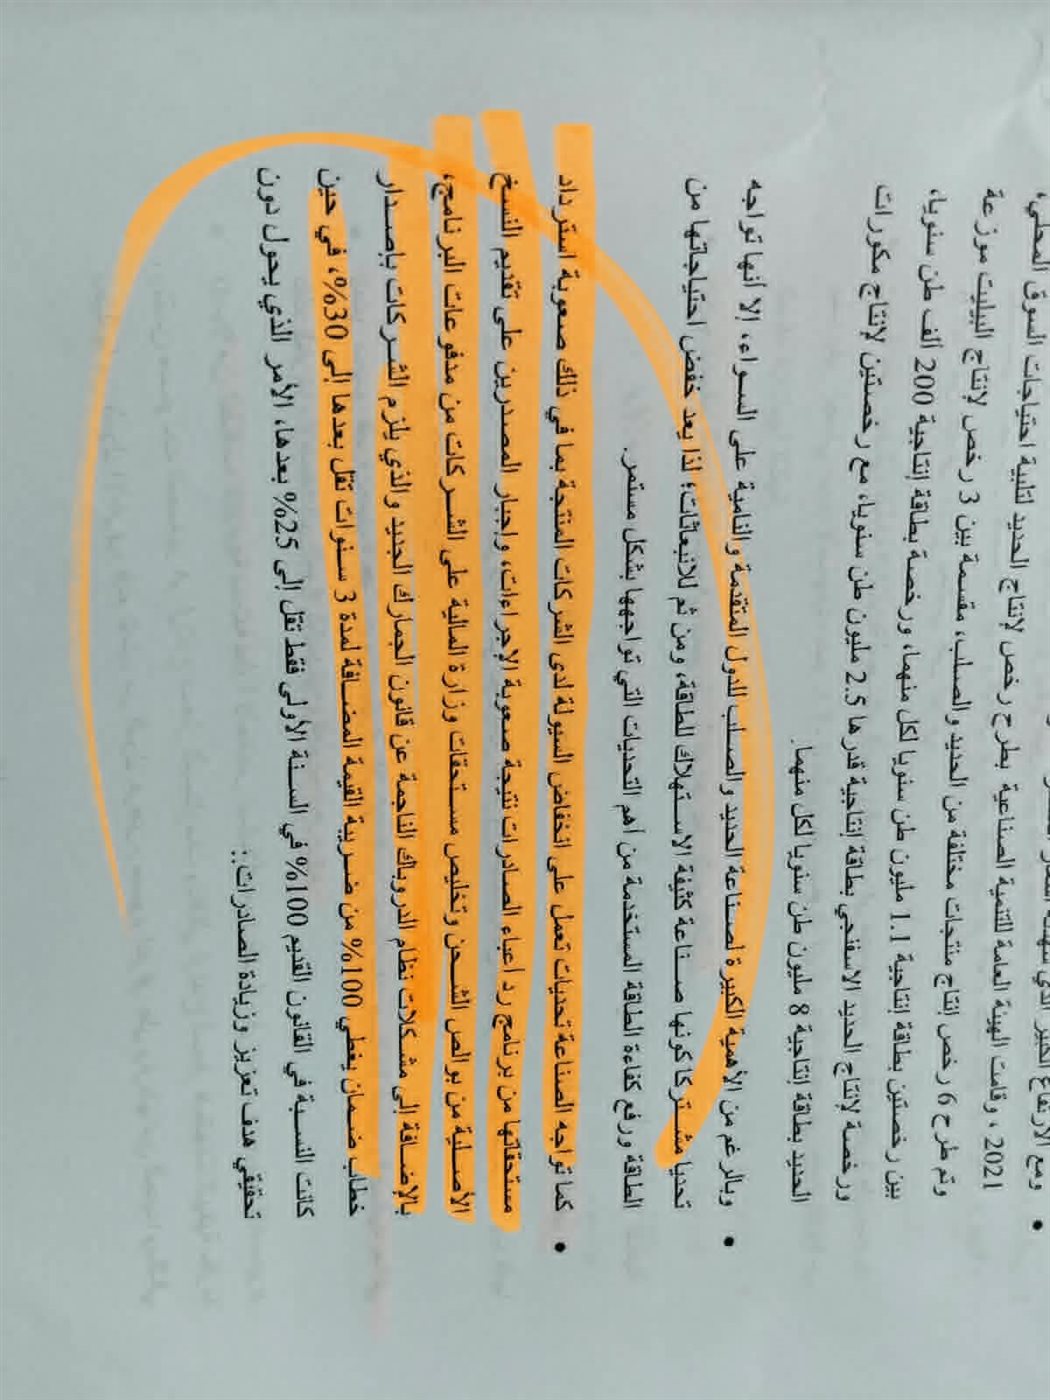 ومع الارتفاع الكبير الذي
2021 ، وقامت الهيئة العامة للتنمية الصناعية بطرح رخص لإنتاج الحديد لتلبية احتياجات السوق المحلي،
وتم طرح 6 رخص إنتاج منتجات مختلفة من الحديد والصلب، مقسمة بين 3 رخص لإنتاج البيليت موزعة
بين رخصتين بطاقة إنتاجية 1.1 مليون طن سنويا لكل منهما، ورخصة بطاقة إنتاجية 200 ألف طن سنويا،
ورخصة لإنتاج الحديد الاسفنجي بطاقة إنتاجية قدرها 2.5 مليون طن سنويا، مع رخصتين لإنتاج مكورات
الحديد بطاقة إنتاجية 8 مليون طن سنويا لكل منهما.
• وبالرغم من الأهمية الكبيرة لصناعة الحديد والصلب للدول المتقدمة والنامية على السواء، إلا أنها تواجه
تحديا مشتركا كونها صناعة كثيفة الاستهلاك للطاقة، ومن ثم للانبعاثات؛ لذا يعد خفض احتياجاتها من
الطاقة ورفع كفاءة الطاقة المستخدمة من أهم التحديات التي تواجهها بشكل مستمر.
• كما تواجه الصناعة تحديات تعمل على انخفاض السيولة لدى الشركات المنتجة بما في ذلك صعوبة استرداد
مستحقاتها من برنامج رد اعباء الصادرات نتيجة صعوبة الإجراءات، وإجبار المصدرين على تقديم النسخ
الأصلية من بوالص الشحن وتخليص مستحقات وزارة المالية على الشركات من مدفوعات البرنامج،
بالإضافة إلى مشكلات نظام الدروباك الناجمة عن قانون الجمارك الجديد والذي يلزم الشركات بإصدار
خطاب ضمان يغطي 100% من ضريبة القيمة المضافة لمدة 3 سنوات تقل بعدها إلى 30%، في حين
كانت النسبة في القانون القديم 100% في السنة الأولى فقط تقل إلى 25% بعدها، الأمر الذي يحول دون
تحقيقي هدف تعزيز وزيادة الصادرات.: